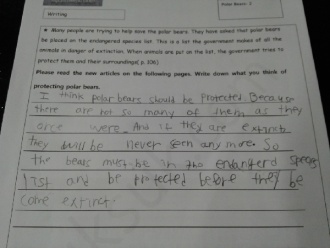 Polar Bear- 2
Writing
★ Many people are trying to help save the polar bears. They have asked that polar bears
be placed on the endangered species list. This is a list the government makes of all the
animals in danger of extinction. When animals are put on the list, the government tries to
protect them and their surroundings( p. 106)
Please read the new articles on the following pages. Write down what you think of
protecting polar bears.
I think polar bears should be protected. Because
there are not so many of them as they
once were. And if they are extinct
they will be never seen any more. So
the bears must be in the endangerd species
list and be protected before they be
come extinct.